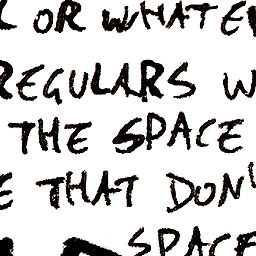 OR WHATE
REGULARS W
THE SPACE
E THAT DON'
SPACE